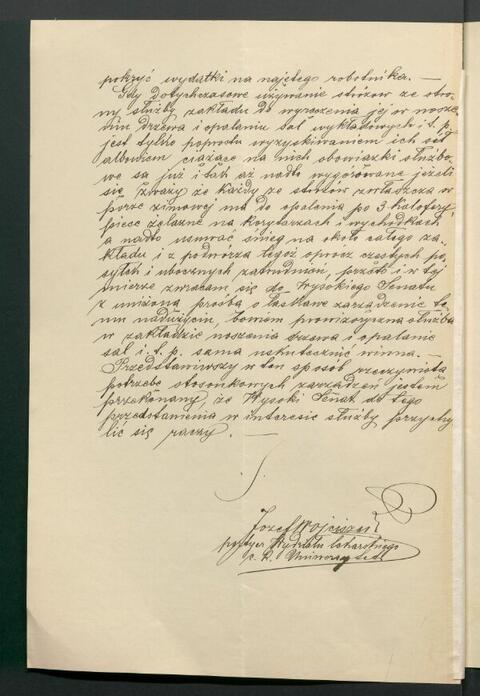 pokryć wydatki na najętego robotnika. —
Gdy dotychczasowe używanie stróżów ze stro-
ny służby zakładu do wyręczenia jej w nosze-
niu drzewa i opalaniu sal wykładowych i t. p.
jest tylko poprostu wyzyskiwaniem ich sił
albowiem ciążące na nich obowiązki służbo-
we są już i tak aż nadto wygórowane jeżeli
się zważy że każdy ze stróżów zwłaszcza w
porze zimowej ma do opalania po 3 kalofery,
piece żelazne na korytarzach i wychodkach
a nadto usuwać śnieg na około całego za-
kładu i z podwórza tegoż oprócz częstych po-
syłek i ubocznych zatrudnień, przeto i w tej
mierze zwracam się do Wysokiego Senatu
z uniżoną prośbą o łaskawe zarządzenie te-
mu nadużyciu, bowiem prowizoryczna służba
w zakładzie noszenia drzewa i opalanie
sal i. t. p. sama uskutecznić winna. —
Przedstawiwszy w ten sposób rzeczywistą
potrzebę stosownych zarządzeń jestem
przekonany, że Wysoki Senat do tego
przedstawienia w interesie służby przychy-
lić się raczy. —
Józef Wojciszek
portyer Wydziału lekarskiego
c. k. Uniwersytetu